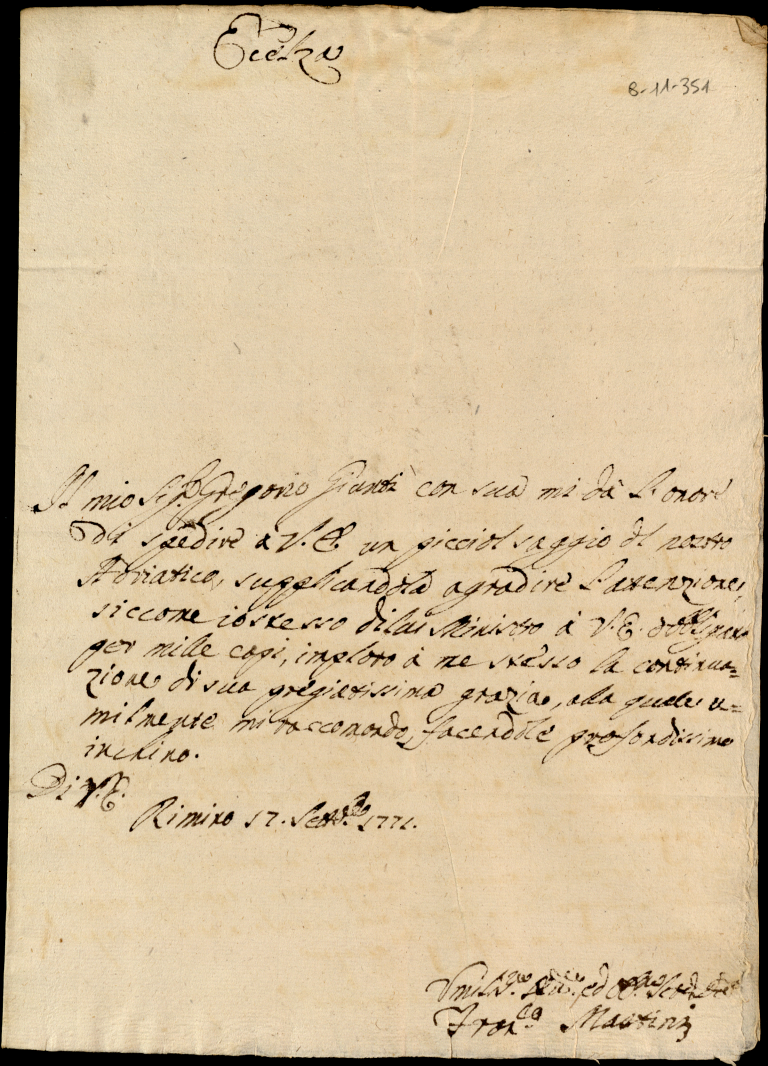 Eccelza
8-11-351
Il mio Sig.r Gregorio Giunti con sua mi dà l'onore
di spedire a V.E. un picciol saggio del nostro
Adriatico, supplicandola agradire l'attenzione,
siccome io stesso di lui Ministro à V.E.
per mille capi, imploro à me stesso la continua=
zione di sua pregiatissima grazia, alla quale u=
milmente mi raccomando, facendole profondissimo
inchino.
Di V.E.
Rimino 17. Settbre 1771.
ed
Fran.co Martini